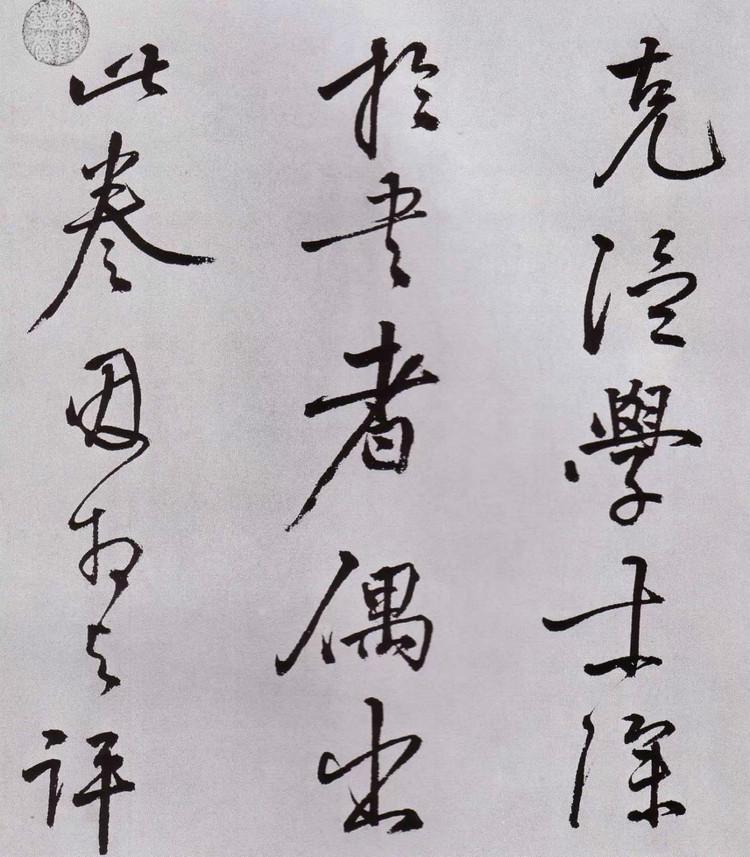 克温學士深
於書者偶出
此卷因相与評